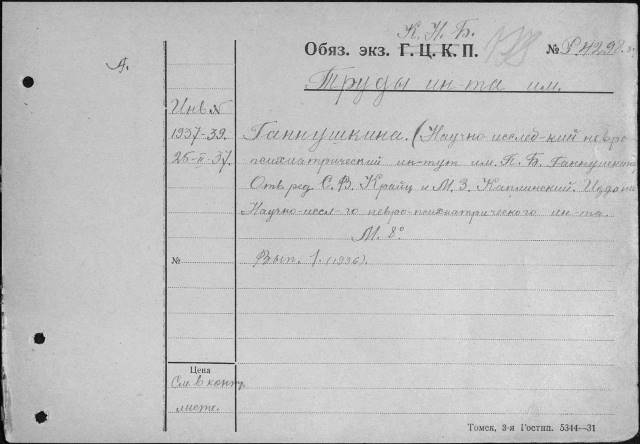 К. Н. Б.
Обяз. экз. Г. Ц. К. П. №
А.
Труды ин-та им.
Инв №
1937-39.
25-II-37.
Ганнушкина. (Научно исслед-кий невро
психиатрический ин-тут им. П. Б. Ганнушкина
Отв. ред. С. Я. Крайц и М. З. Каплинский. Изд-
Научно-иссл-го невро-психиатрического ин-та.
М. 8°
№ Вып. 1. (1936).
Цена
См. в конт.
листе.
Томск, 3-я Гостип. 5344—31